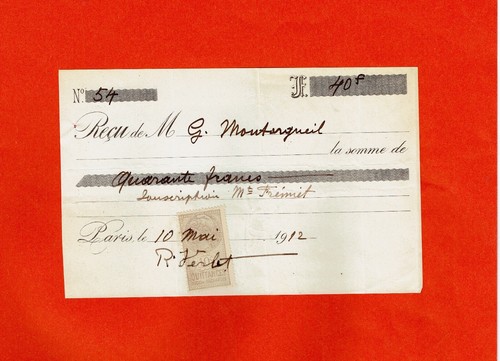 No. 54 F. 40 f
Reçu de M G. Montorgueil
la somme de
Quarante francs
Souscription Mt Frémiet
Paris, le 10 Mai 1912
R. Verlet